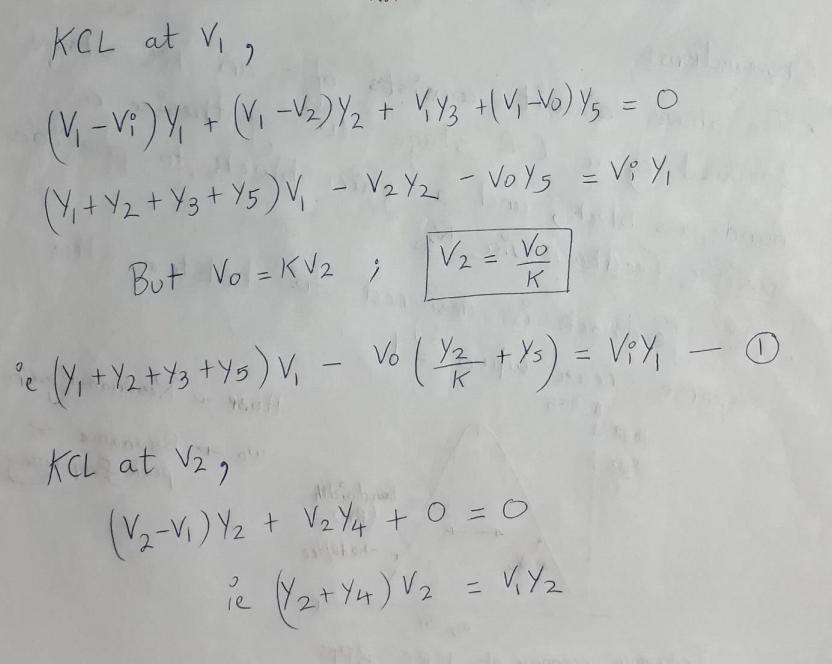 KCL at V₁,
(V₁-Vi)Y₁ + (V₁-V₂)Y₂ + V₁Y₃ + (V₁-V₀)Y₅ = 0
(Y₁+Y₂+Y₃+Y₅)V₁ - V₂Y₂ - V₀Y₅ = ViY₁
But V₀ = KV₂ ; V₂ = V₀/K
ie (Y₁+Y₂+Y₃+Y₅)V₁ - V₀(Y₂/K + Y₅) = ViY₁ — ①
KCL at V₂,
(V₂-V₁)Y₂ + V₂Y₄ + 0 = 0
ie (Y₂+Y₄)V₂ = V₁Y₂